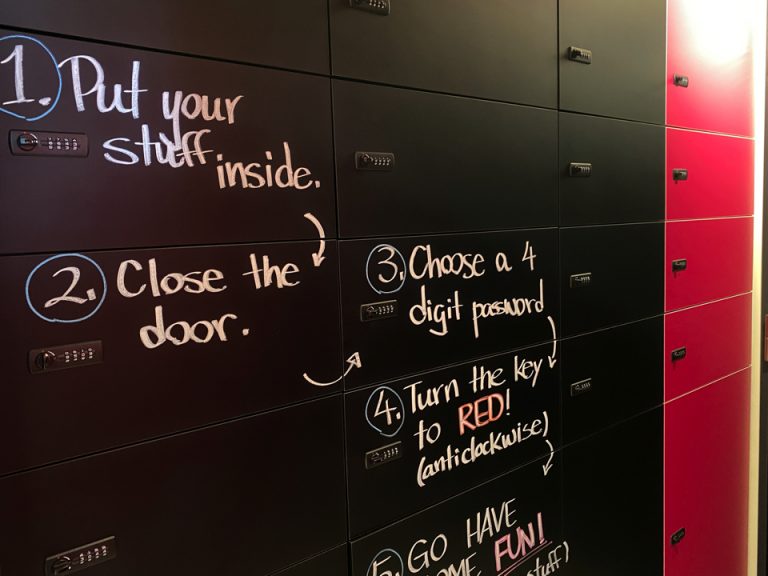 1. Put your
stuff inside.
2. Close the
door.
3. Choose a 4
digit password
4. Turn the key
to RED!
(anticlockwise)
5. GO HAVE
SOME FUN!
stuff)